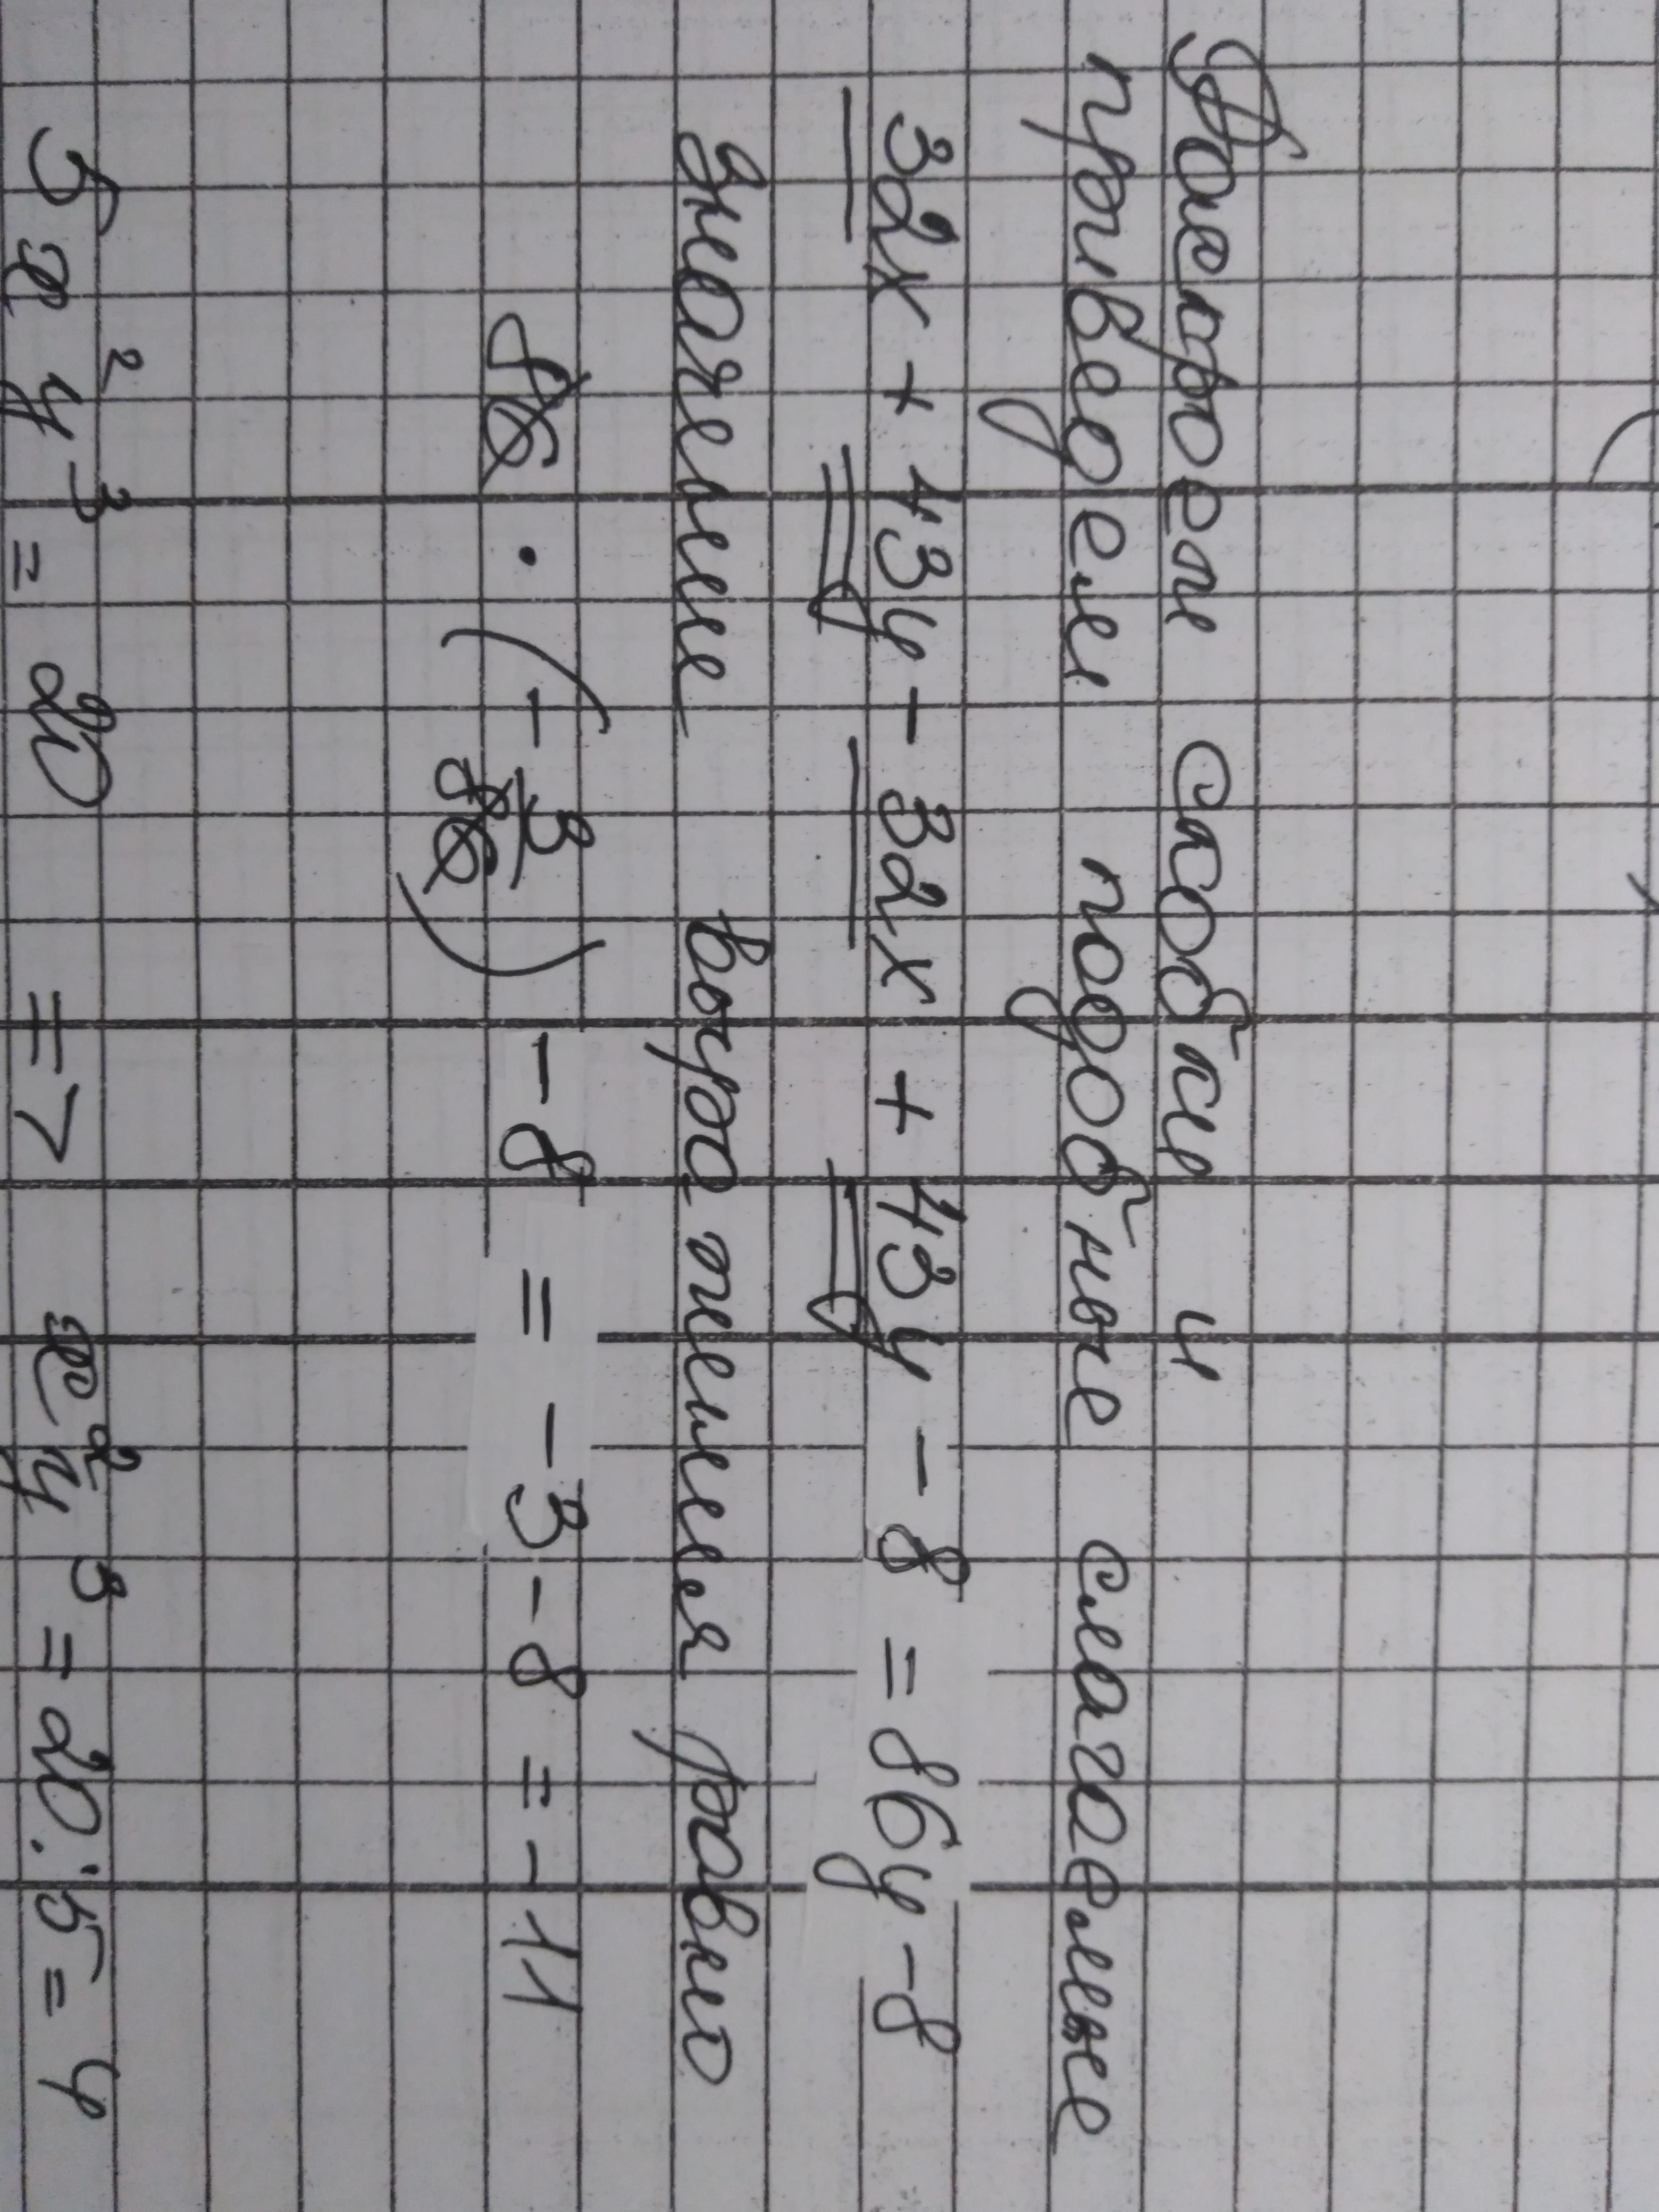 Раскроем скобки и
приведем подобные слагаемые
32x + 43y - 32x + 43y - 8 = 86y - 8
Значение выражения равно
86 · (- 3/86) - 8 = -3 - 8 = -11
5x²y³ = 20 => x²y³ = 20 : 5 = 4